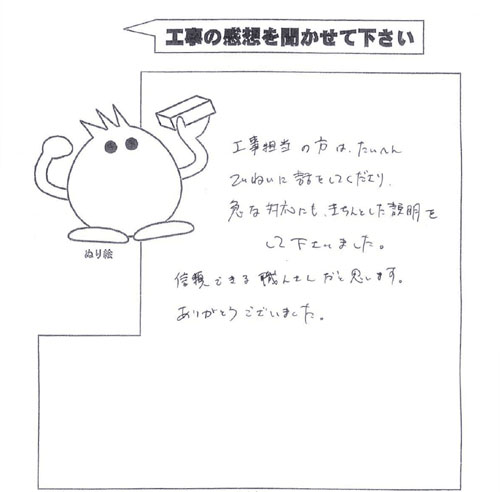 工事の感想を聞かせて下さい
工事担当の方は、たいへん
ていねいに話をしてくださり、
急な対応にも、きちんとした説明を
して下さいました。
信頼できる職人さんだと思います。
ありがとうございました。
ぬり絵